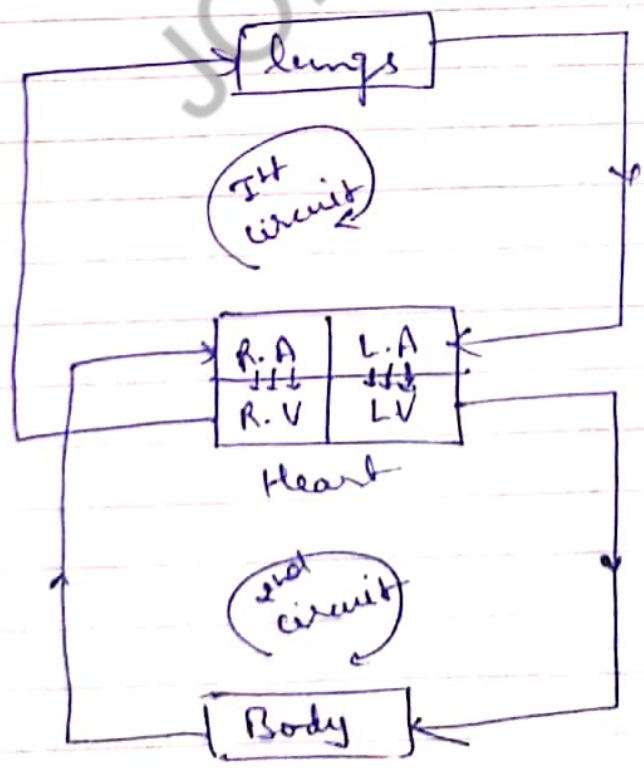 lungs
Ist
circuit
R.A L.A
R.V LV
Heart
2nd
circuit
Body